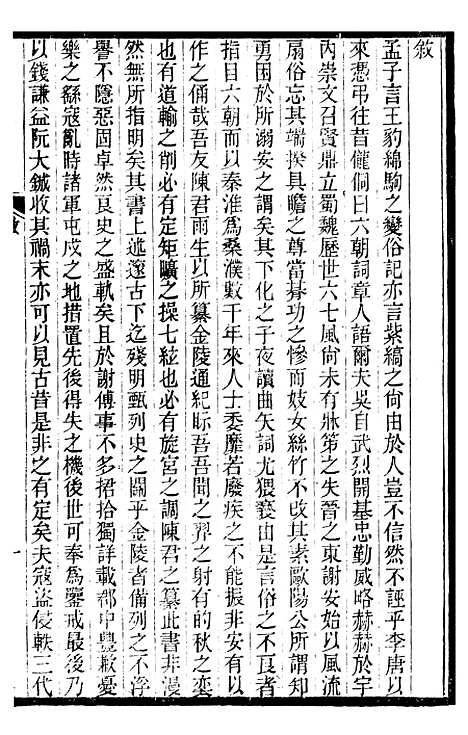 敘
孟子言王豹綿駒之變俗記亦言紫縞之尙由於人豈不信然不誣乎李唐以
來憑弔往昔儱侗曰六朝詞章人語爾夫吳自武烈開基忠勤威略赫赫於宇
內崇文召賢鼎立蜀魏歷世六七風尙未有牀笫之失晉之東謝安始以風流
扇俗忘其端揆具瞻之尊當朞功之慘而妓女絲竹不改其素歐陽公所謂知
勇困於所溺安之謂矣其下化之子夜讀曲矢詞尤猥褻由是言俗之不良者
指目六朝而以秦淮爲桑濮數千年來人士委靡若廢疾之不能振非安有以
作之俑哉吾友陳君雨生以所纂金陵通紀眎吾吾聞之羿之射有的秋之奕
也有道輸之削必有定矩曠之操七絃也必有旋宮之調陳君之纂此書非漫
然無所指明矣其書上述邃古下迄殘明甄列史之關乎金陵者備列之不浮
譽不隱惡固卓然良史之盛軌矣且於謝傅事不多捃拾獨詳載郡中豐歉憂
樂之繇寇亂時諸軍屯戍之地措置先後得失之機後世可奉爲鑒戒最後乃
以錢謙益阮大鋮收其禍末亦可以見古昔是非之有定矣夫寇盜侵軼三代
敘
一